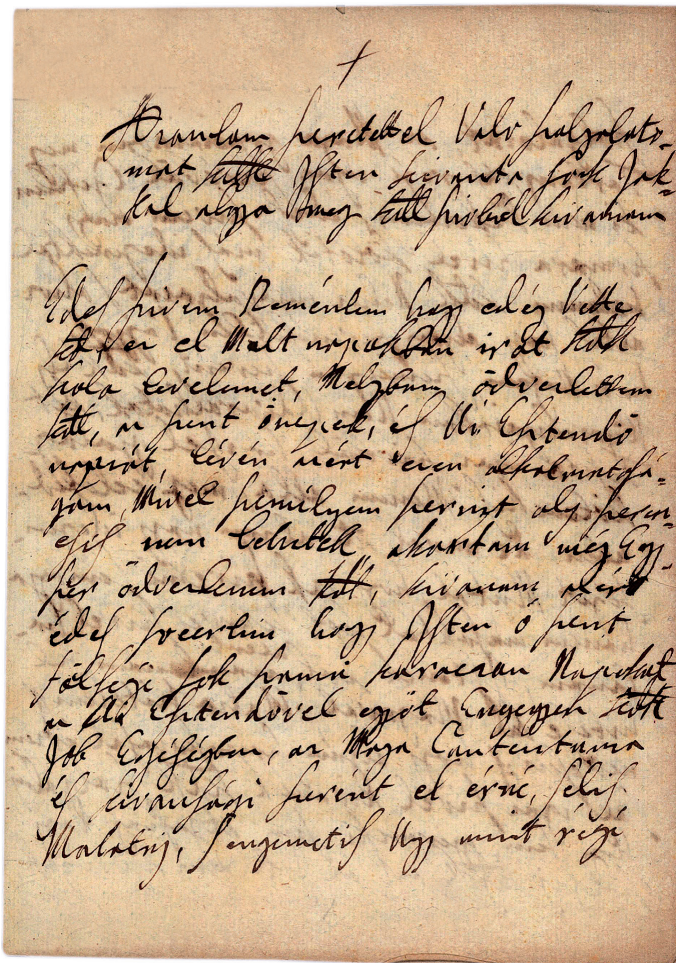 szeretettel Valo szolgalato-
mat Isten kivanta sok Jok-
kal algya meg szivbül kivanom
Edes szivem Reménlem hogy edég Vette
az el Mult napokban irót
levelemet, Melyben ödvezlettem
a szent önepek, és Uj Esztendö
napiát, lévén azért ezen alkalmatosá-
gom, Mivel szemilyem szerint oly szeren-
csis nem lehetek, akartam még Egy-
szer ödvezlenem, kivanom azért
édes hogy Isten ö szent
fölségi sok szamu karacson Napokat
az Uj Esztendövel egyöt Engegyen
Job Egiségben, az Maga Contentuma
és kivansági szerént el érni,
engemetis Ugy mint régi